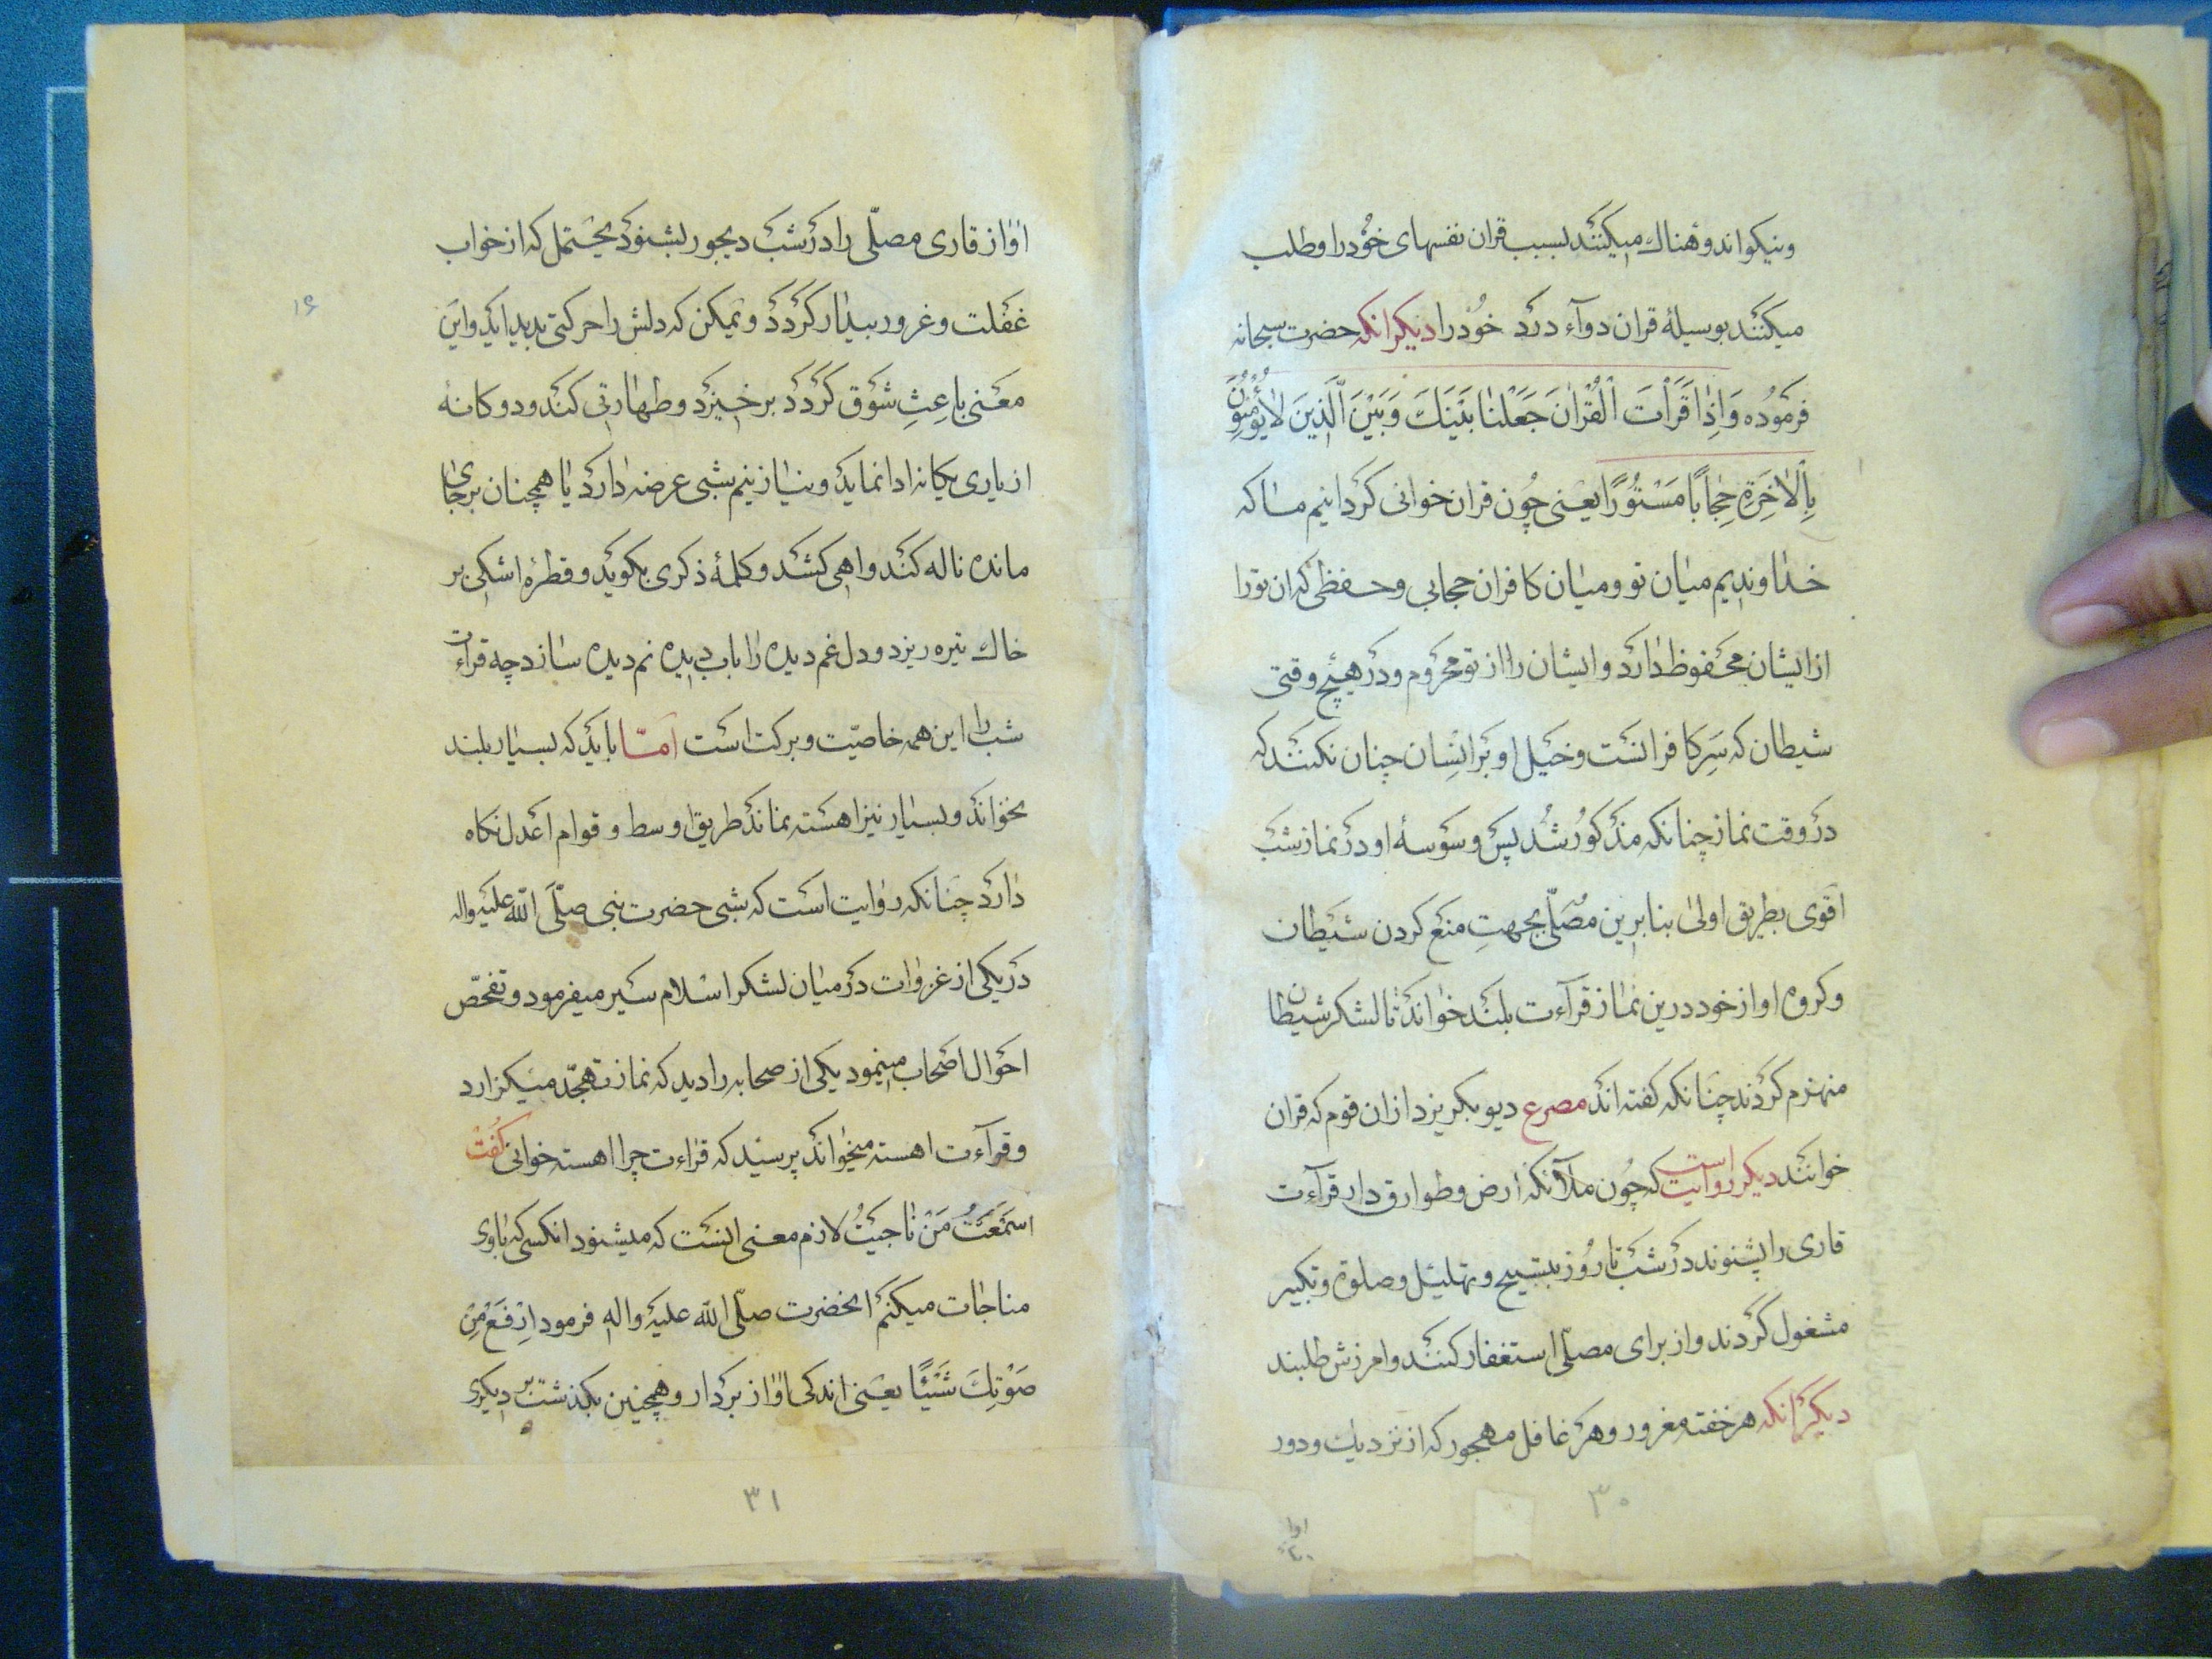 ونیکواند وهناك میکنند بسبب قران نفسهای خود را وطلب
میکنند بوسیلهٔ قران دوآء درد خود را دیکر انکه حضرت سبحانه
فرموده وَاِذٰا قَرَأْتَ الْقُرْاٰنَ جَعَلْنٰا بَیْنَكَ وَبَیْنَ الَّذِینَ لاٰیُؤْمِنُونَ
بِالْاٰخِرَةِ حِجٰاباً مَسْتُوراً یعنی چون قران خوانی کردانیم ما که
خداوندیم میان تو ومیان کافران حجابی وحفظی که ان تو را
از ایشان محفوظ دارد وایشان را از تو محروم ودر هیچ وقتی
شیطان که سر کافرانست وخیل او بر انسان چنان نکنند که
در وقت نماز چنانکه مذکور شد پس وسوسهٔ او در نماز شب
اقوی بطریق اولی بنابرین مصلّی بجهت منع کردن شیطان
وکروه او از خود درین نماز قرآءت بلند خواند تا لشکر شیطان
منهزم کردند چنانکه کفته اند مصرع دیو بکریزد از ان قوم که قران
خوانند دیکر روایت است که چون ملآئکه ارض وطوارق دار قرآءت
قاری را بشنوند در شب تا روز بتسبیح وتهلیل وصلوة وتکبیر
مشغول کردند واز برای مصلّی استغفار کنند وامرزش طلبند
دیکر انکه هر خفته مغرور وهر غافل مهجور که از نزدیك ودور
۳۰
اوا
اواز قاری مصلّی را در شب دیجور بشنود یحتمل که از خواب
غفلت وغرور بیدار کردد ویمکن که دلش را حرکتی پدید اید واین
۱۶
معنی باعث شوق کردد برخیزد وطهارتی کند ودوکانهٔ
از یاری یکانه ادا نماید ونیاز نیم شبی عرضه دارد یا همچنان برجای
مانده ناله کند واهی کشد وکلمهٔ ذکری بکوید وقطرهٔ اشکی بر
خاك تیره ریزد ودل غم دیده را باب دیده نم دیده سازد چه قراءت
شب را این همه خاصیّت وبرکت است امّا باید که بسیار بلند
بخواند وبسیار نیز اهسته نماند طریق اوسط وقوام اعدل نکاه
دارد چنانکه روایت است که شبی حضرت نبی صلّی الله علیه واله
در یکی از غزوات در میان لشکر اسلام سیر میفرمود وتفحّص
احوال اصحاب مینمود یکی از صحابه را دید که نماز تهجّد میکزارد
وقرآءت اهسته میخواند پرسید که قراءت چرا اهسته خوانی کفت
اسمعت من ناجیت لازم معنی انست که میشنود انکسی که باوی
مناجات میکنم انحضرت صلّی الله علیه واله فرمود اِرْفَعْ مِنْ
صَوْتِكَ شَیْئًا یعنی اندکی اواز بردار وهمچنین بکذشت بر دیکری
۳۱